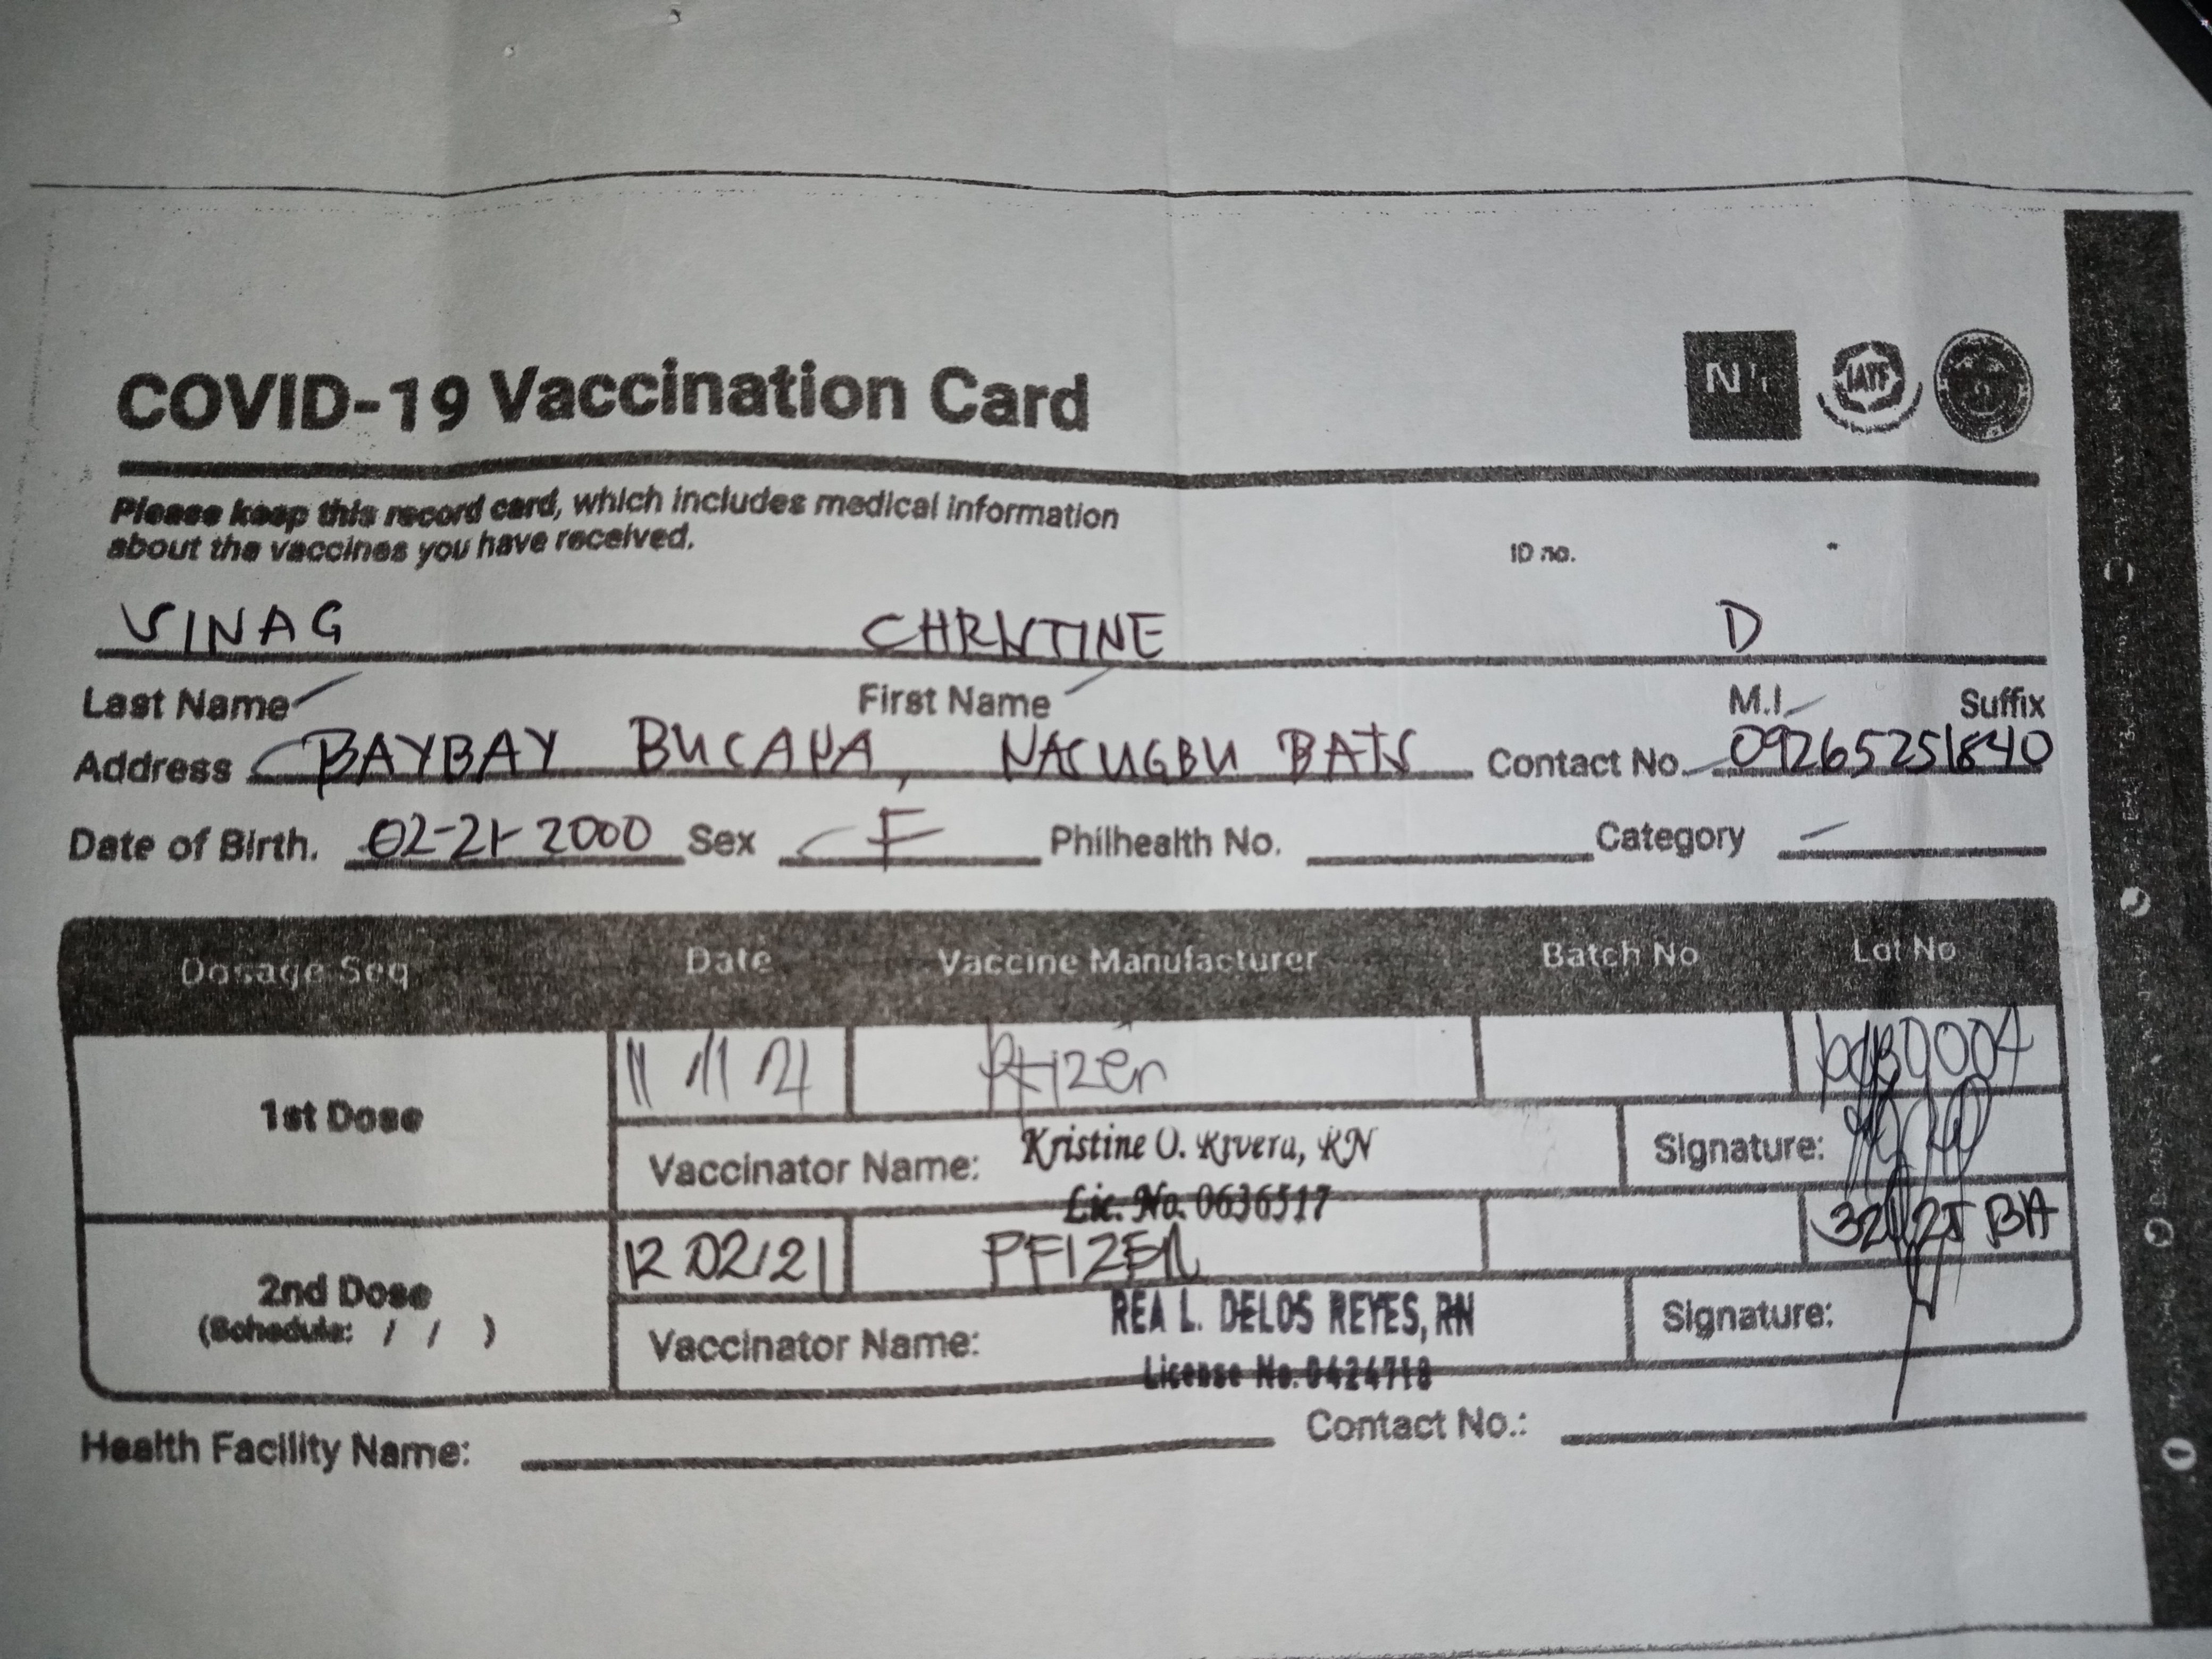 COVID-19 Vaccination Card
IATF
Please keep this record card, which includes medical information
about the vaccines you have received.
ID no.
VINAG CHRISTINE D
Last Name First Name M.I. Suffix
Address BAYBAY BUCANA, NASUGBU BATS Contact No. 09265251840
Date of Birth. 02-21-2000 Sex F Philhealth No. Category
Dosage Seq Date Vaccine Manufacturer Batch No Lot No
1st Dose 11/11/21 Pfizer
Vaccinator Name: Kristine O. Rivera, RN Signature:
Lic. No. 0636517
2nd Dose 12/02/21 PFIZER
(Schedule: / / )
Vaccinator Name: REA L. DELOS REYES, RN Signature:
License No. 0424718
Health Facility Name: Contact No.: